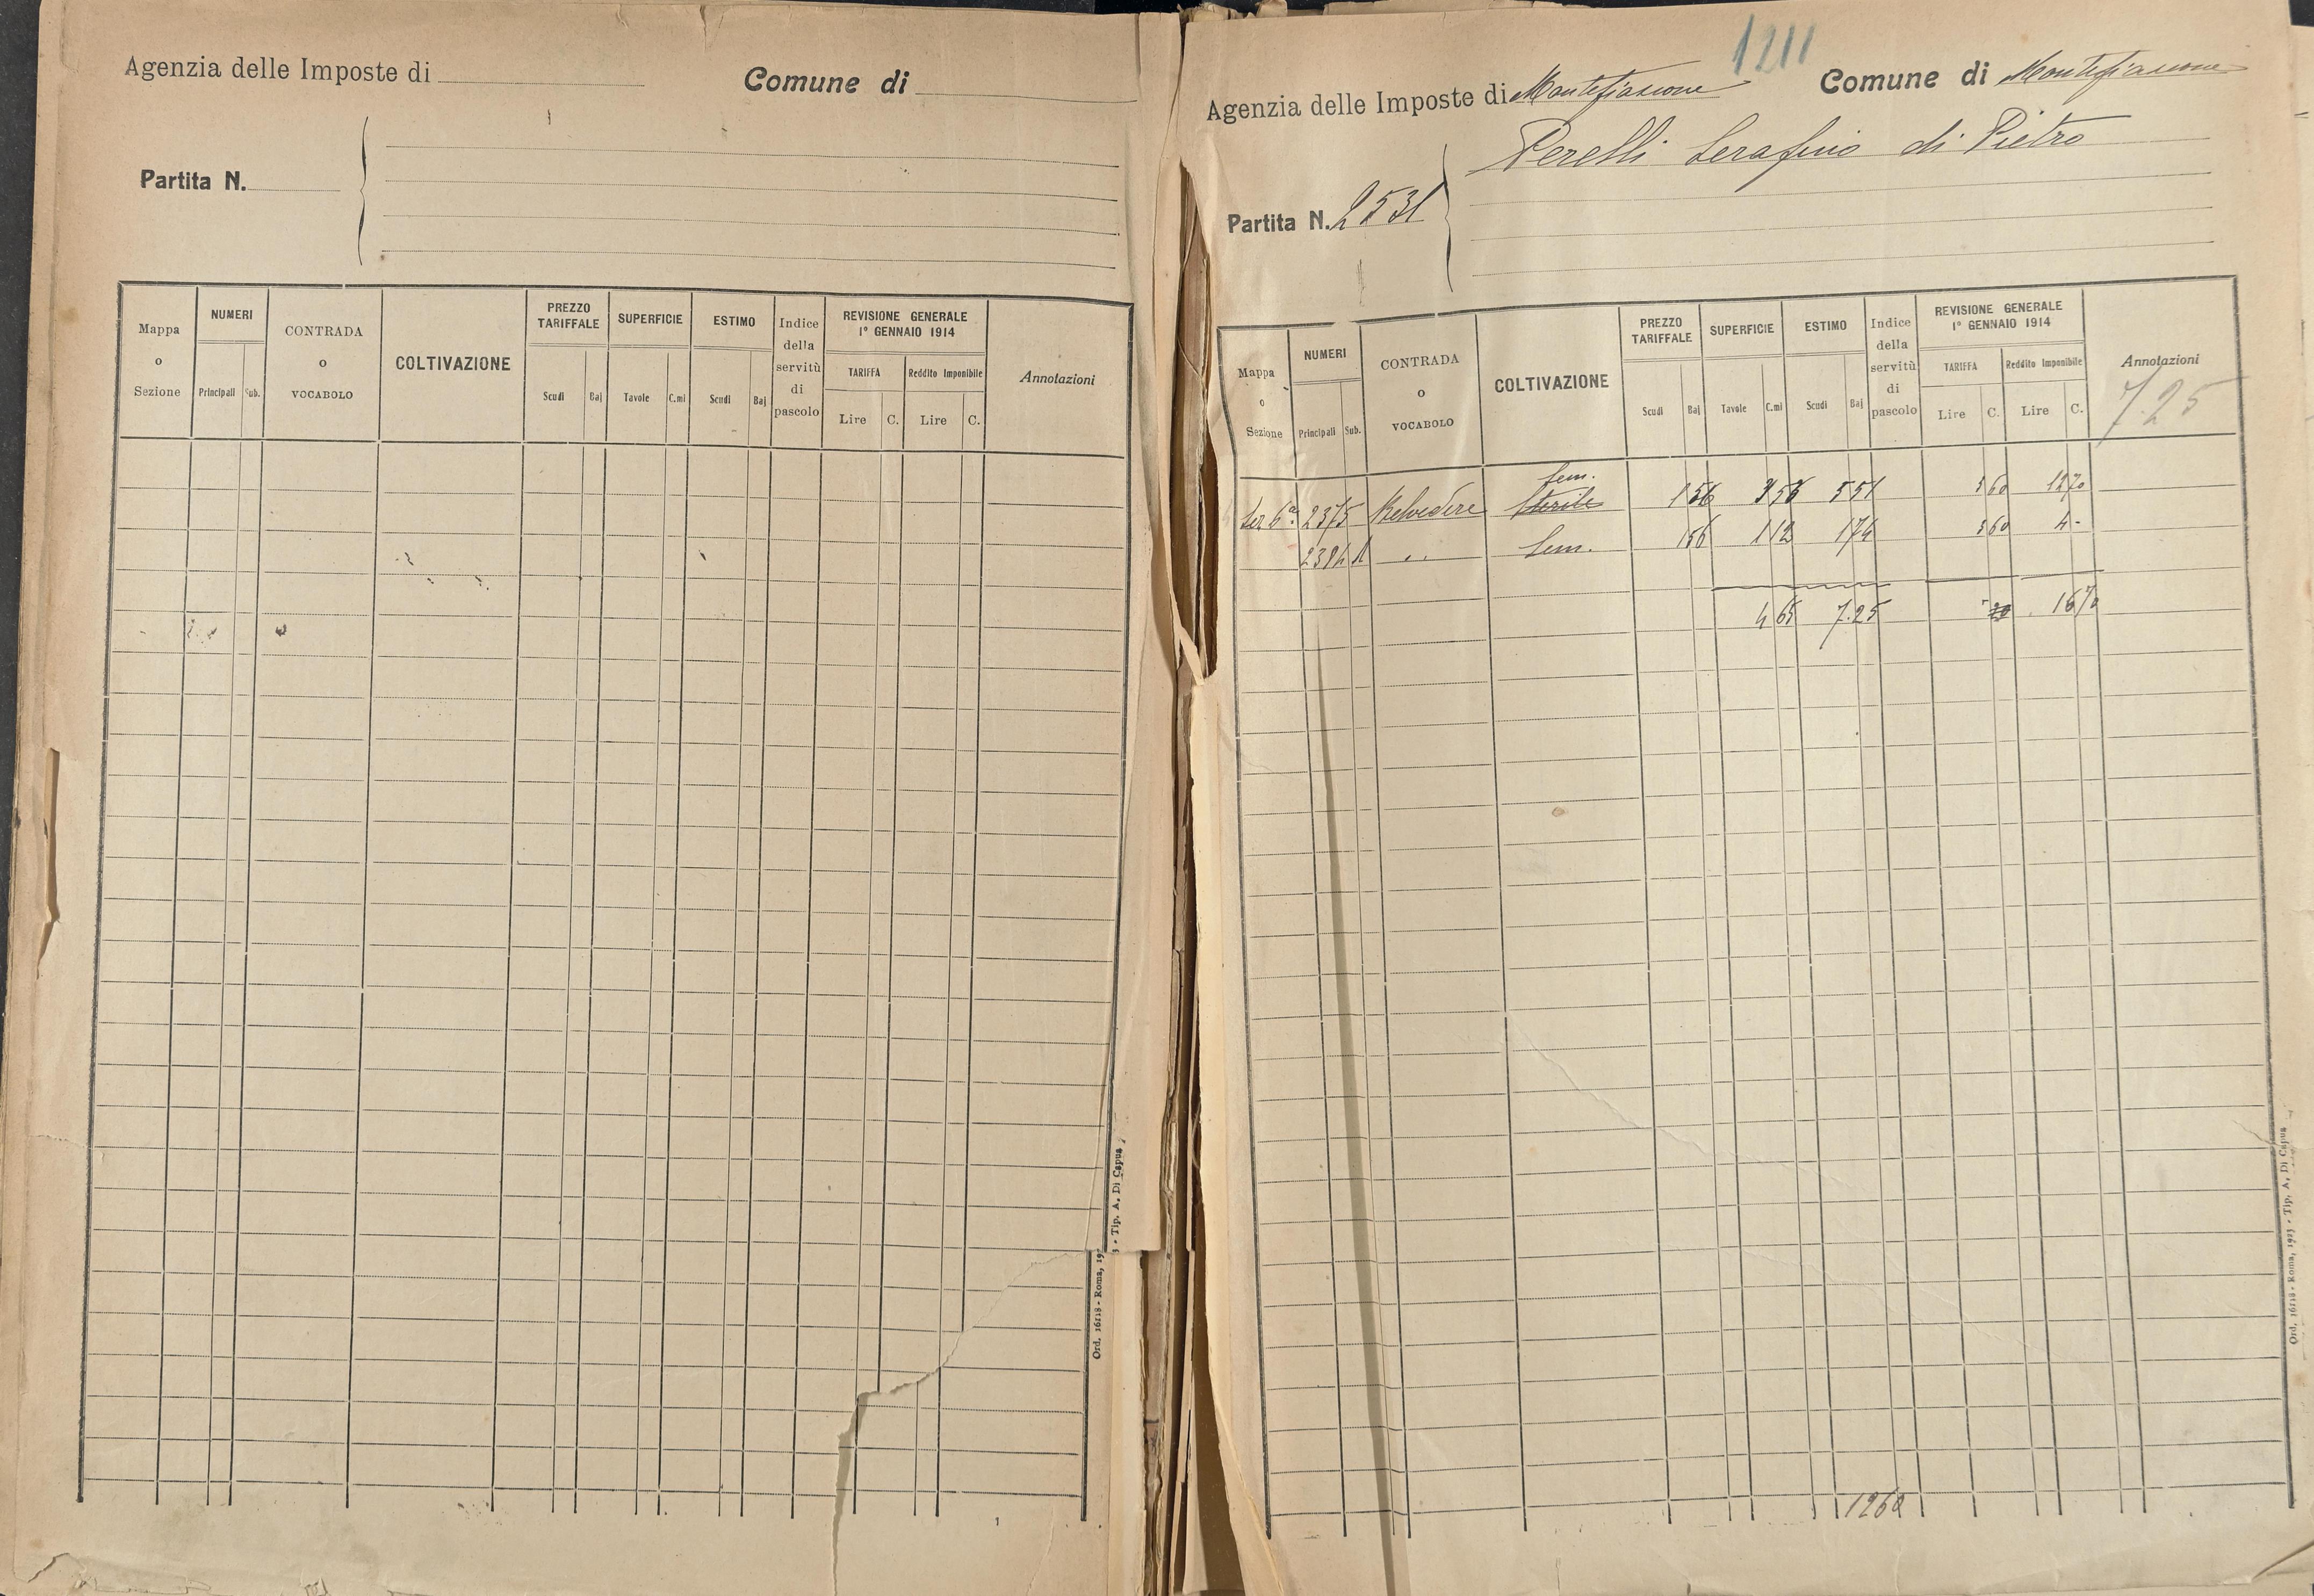 Agenzia delle Imposte di
Comune di
Partita N.
Mappa o Sezione
NUMERI
Principali
Sub.
CONTRADA o VOCABOLO
COLTIVAZIONE
PREZZO TARIFFALE
Scudi
Baj
SUPERFICIE
Tavole
C.mi
ESTIMO
Scudi
Baj
Indice della servitù di pascolo
REVISIONE GENERALE
1° GENNAIO 1914
TARIFFA
Reddito Imponibile
Lire
C.
Lire
C.
Annotazioni
3 - Tip. A. Di Capua
Ord. 16118 - Roma, 19
1211
Agenzia delle Imposte di Montefiascone
Comune di Montefiascone
Perelli Serafino di Pietro
Partita N. 2531
Mappa o Sezione
NUMERI
Principali
Sub.
CONTRADA o VOCABOLO
COLTIVAZIONE
PREZZO TARIFFALE
Scudi
Baj
SUPERFICIE
Tavole
C.mi
ESTIMO
Scudi
Baj
Indice della servitù di pascolo
REVISIONE GENERALE
1° GENNAIO 1914
TARIFFA
Reddito Imponibile
Lire
C.
Lire
C.
Annotazioni
7.25
Sem.
Sez 6a 2375 Belvedere Sterile 1 56 3 53 5 51 3 60 12 70
2384 1 " Sem. 1 56 1 12 1 74 3 60 4 -
4 65 7.25 16 70
1262
Ord. 16118 - Roma, 1923 - Tip. A. Di Capua